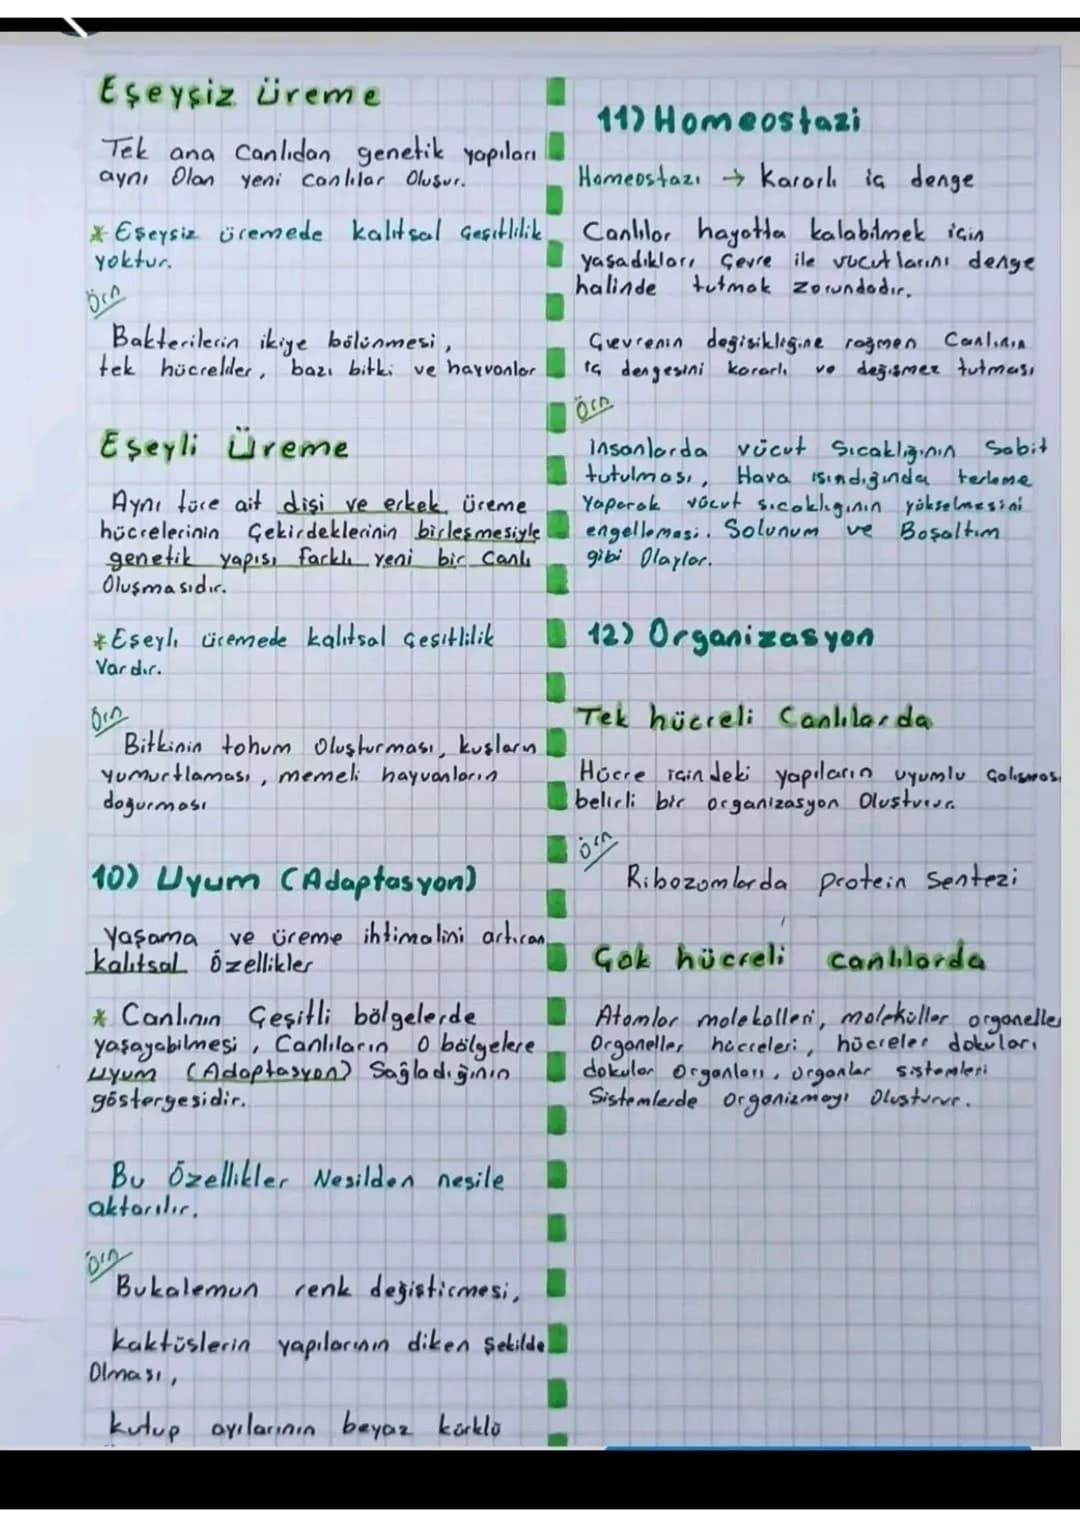 Eşeysiz üreme
Tek ana Canlıdan genetik yapıları
aynı Olan yeni canlılar Oluşur.
* Eşeysiz üremede kalıtsal Çeşitlilik
yoktur.
Örn
Bakterilerin ikiye bölünmesi,
tek hücreliler, bazı bitki ve hayvanlar
Eşeyli Üreme
Aynı türe ait dişi ve erkek üreme
hücrelerinin Çekirdeklerinin birleşmesiyle
genetik yapısı farklı yeni bir Canlı
Oluşmasıdır.
* Eşeyli üremede kalıtsal Çeşitlilik
Vardır.
Örn
Bitkinin tohum Oluşturması, kuşların
yumurtlaması, memeli hayvanların
doğurması
10) Uyum (Adaptasyon)
Yaşama ve üreme ihtimalini artıran
kalıtsal Özellikler
* Canlının Çeşitli bölgelerde
yaşayabilmesi, Canlıların O bölgelere
uyum (Adaptasyon) Sağladığının
göstergesidir.
Bu Özellikler Nesilden nesile
aktarılır.
Örn
Bukalemun renk değiştirmesi,
kaktüslerin yapılarının diken Şekilde
Olması,
kutup ayılarının beyaz kürklü
11) Homeostazi
Homeostazı → kararlı iç denge
Canlılar hayatta kalabilmek için
yaşadıkları Çevre ile vücutlarını denge
halinde tutmak zorundadır.
Çevrenin değişikliğine rağmen Canlının
iç dengesini kararlı ve değişmez tutması
Örn
İnsanlarda vücut Sıcaklığının Sabit
tutulması, Hava ısındığında terleme
Yaparak vücut sıcaklığının yükselmesini
engellemesi. Solunum ve Boşaltım
gibi Olaylar.
12) Organizasyon
Tek hücreli Canlılarda
Hücre içindeki yapıların uyumlu Çalışması
belirli bir organizasyon Oluşturur.
Örn
Ribozomlarda protein Sentezi
Çok hücreli canlılarda
Atomlar molekülleri, moleküller organeller
Organeller hücreleri, hücreler dokuları
dokular Organları, organlar sistemleri
Sistemlerde organizmayı Oluşturur.